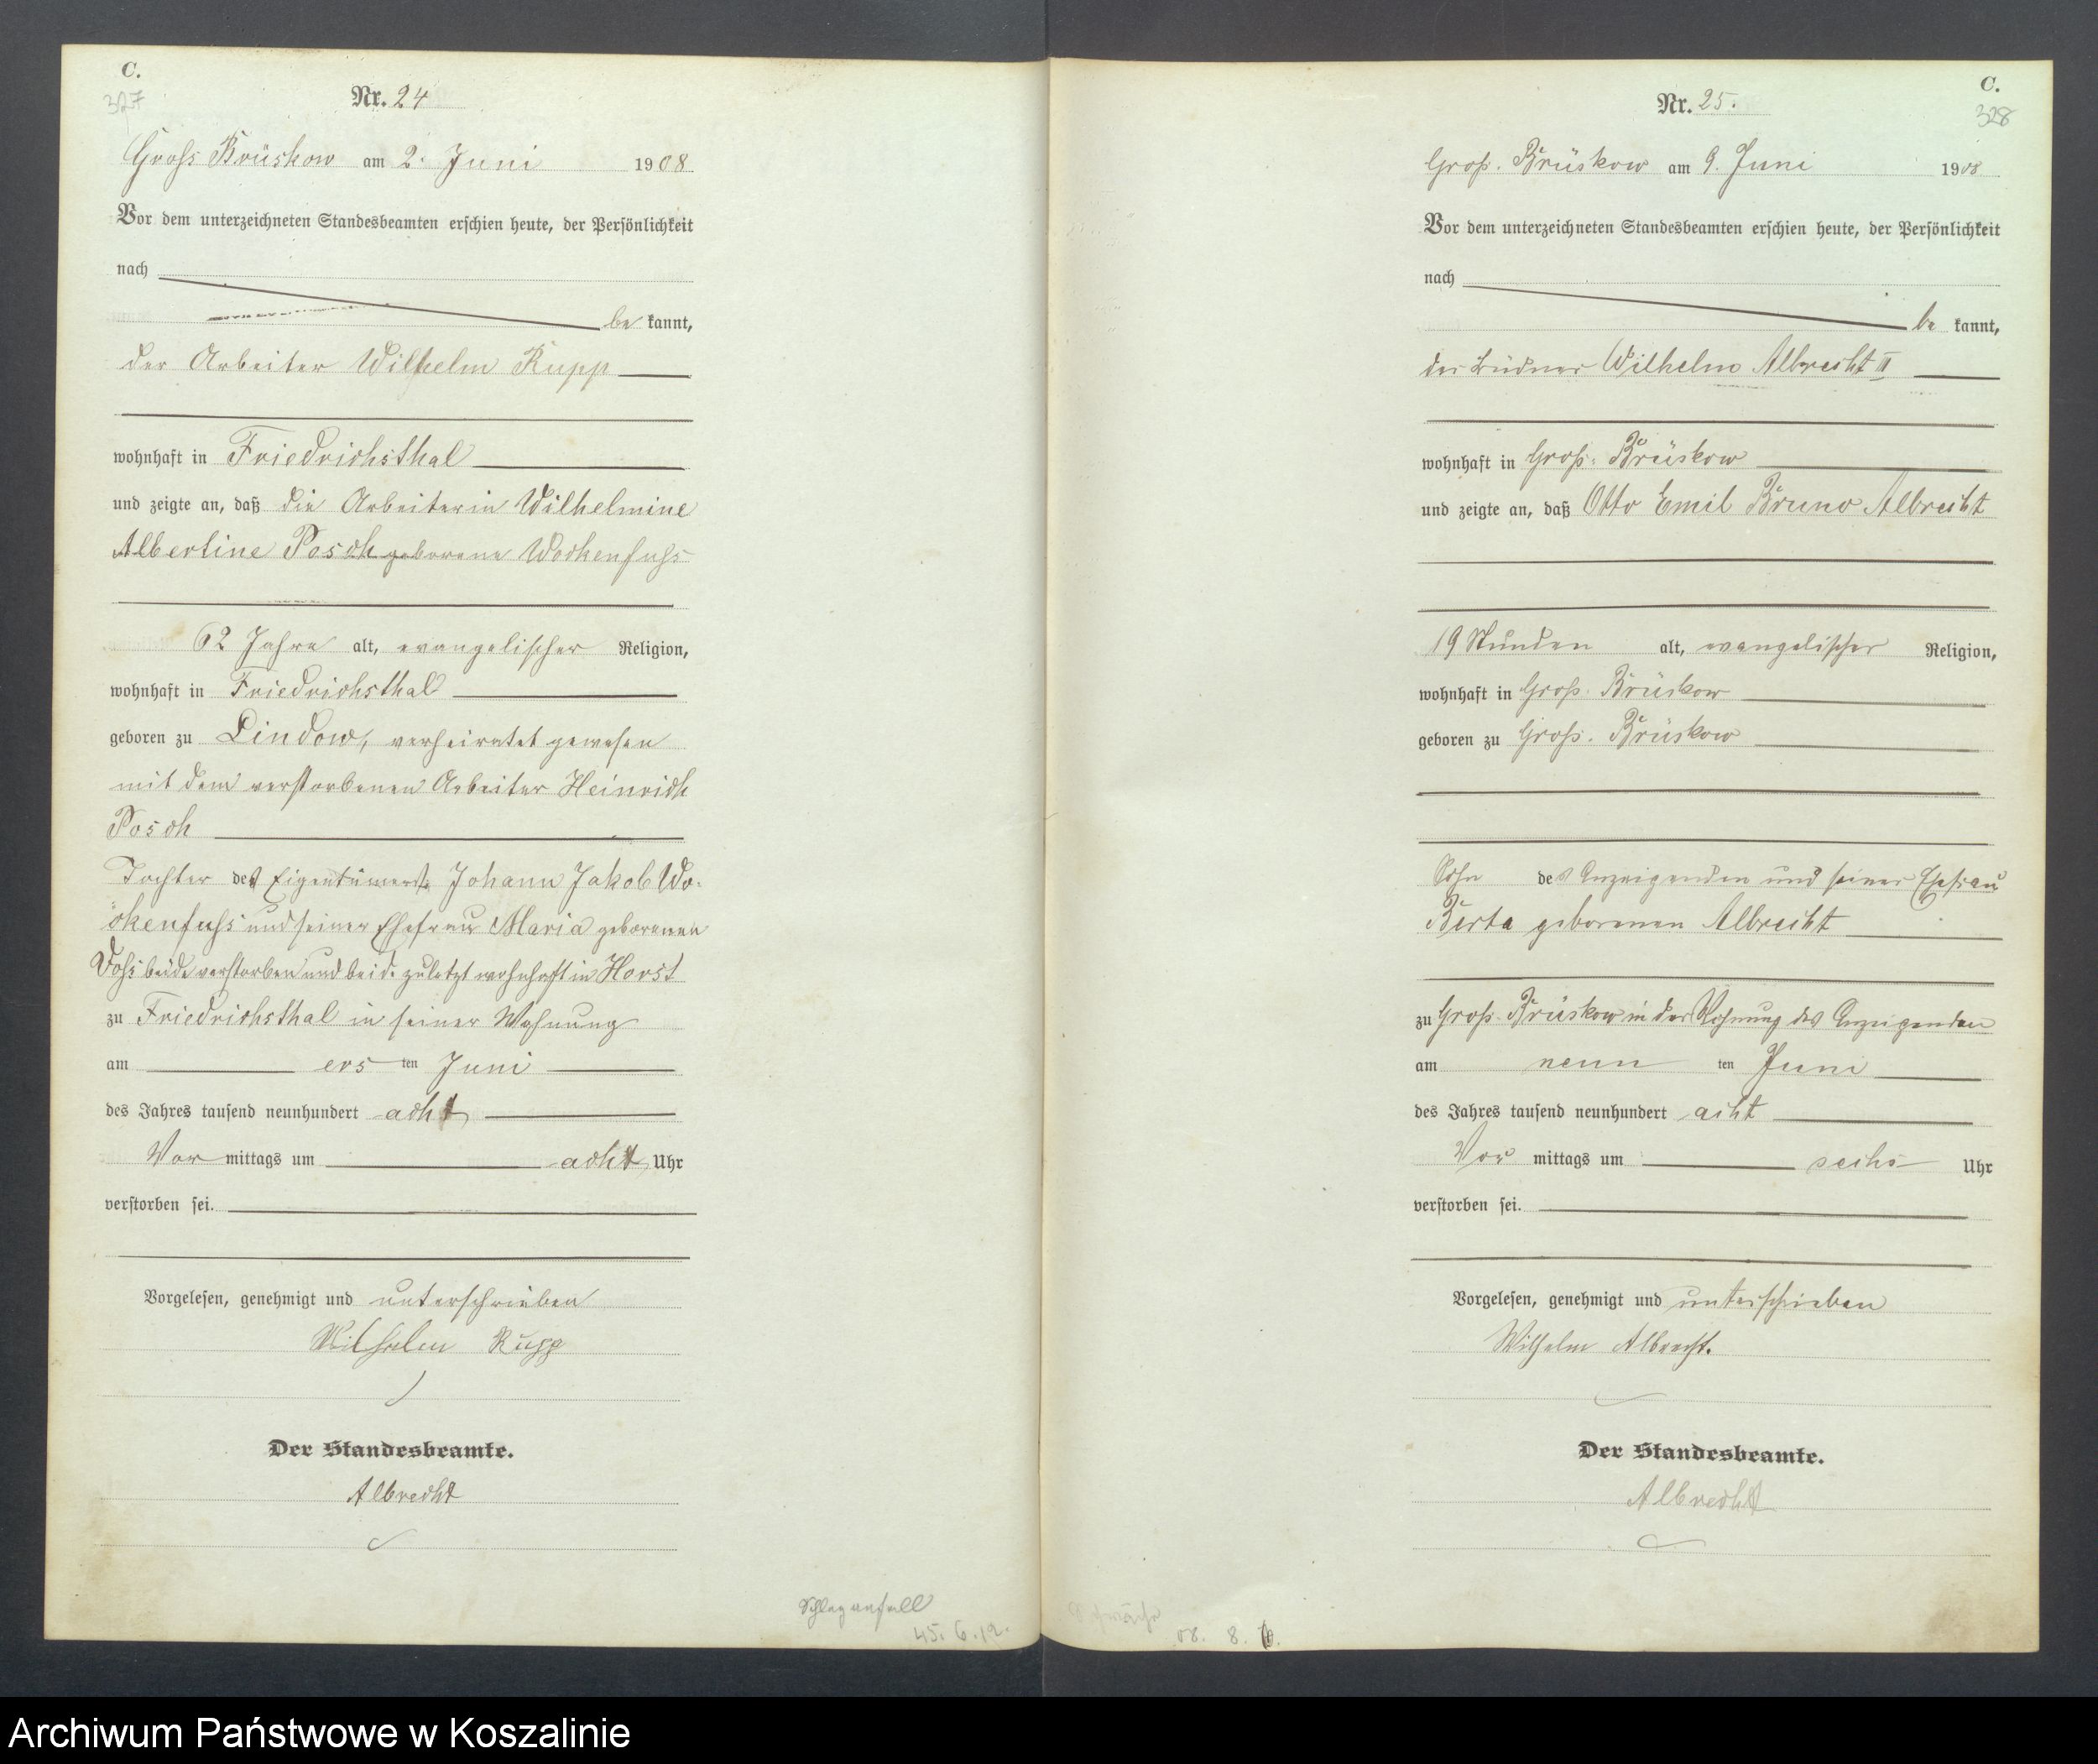 C.
327
Nr. 24
Gross Brüskow am 2. Juni 1908
Vor dem unterzeichneten Standesbeamten erschien heute, der Persönlichkeit
nach
be kannt,
der Arbeiter Wilhelm Rupp
wohnhaft in Friedrichsthal
und zeigte an, daß die Arbeiterin Wilhelmine
Albertine Posch geborene Wochenfuss
62 Jahre alt, evangelischer Religion,
wohnhaft in Friedrichsthal
geboren zu Lindow, verheiratet gewesen
mit dem verstorbenen Arbeiter Heinrich
Posch
Tochter des Eigentümers Johann Jakob Wo-
chenfuss und seiner Ehefrau Maria geborenen
Voss beide verstorben und beide zuletzt wohnhaft in Horst
zu Friedrichsthal in seiner Wohnung
am ers ten Juni
des Jahres tausend neunhundert acht
Vor mittags um acht Uhr
verstorben sei.
Vorgelesen, genehmigt und unterschrieben
Wilhelm Rupp
Der Standesbeamte.
Albrecht
Schlaganfall
45. 6. 12.
C.
328
Nr. 25.
Groß-Brüskow am 9. Juni 1908
Vor dem unterzeichneten Standesbeamten erschien heute, der Persönlichkeit
nach
be kannt,
der Büdner Wilhelm Albrecht II
wohnhaft in Groß-Brüskow
und zeigte an, daß Otto Emil Bruno Albrecht
19 Stunden alt, evangelischer Religion,
wohnhaft in Groß-Brüskow
geboren zu Groß-Brüskow
Sohn des Anzeigenden und seiner Ehefrau
Berta geborenen Albrecht
zu Groß-Brüskow in der Wohnung des Anzeigenden
am neun ten Juni
des Jahres tausend neunhundert acht
Vor mittags um sechs Uhr
verstorben sei.
Vorgelesen, genehmigt und unterschrieben
Wilhelm Albrecht.
Der Standesbeamte.
Albrecht
Schwäche
08. 8.
Archiwum Państwowe w Koszalinie